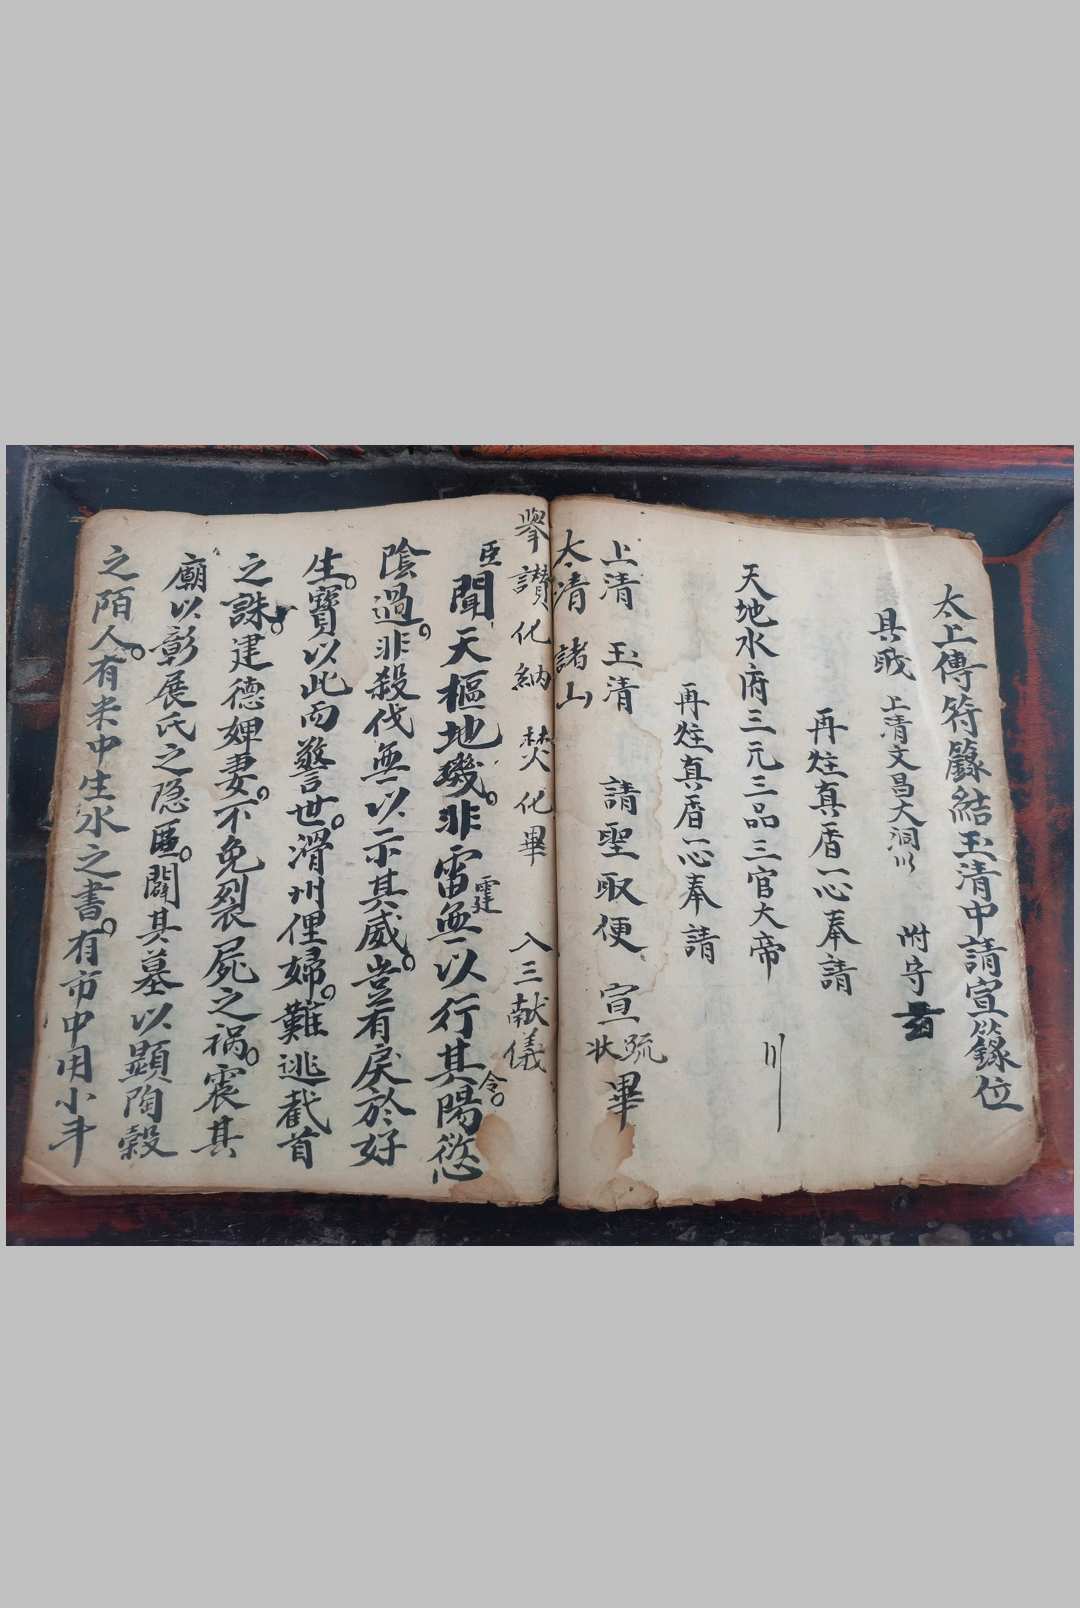 太上傳符籙結玉清中請宣籙位
具職 上清文昌大洞 附守
再炷真香一心奉請
天地水府三元三品三官大帝
再炷真香一心奉請
上清 玉清 請聖取便 宣疏狀畢
太清 諸山
舉讃化納 焚化畢 入三献儀
臣聞天樞地璣非雷霆無以行其陽慾令
陰過非殺伐無以示其威豈有戾於好
生寳以此而警世滑州俚婦難逃截首
之誅建德婢妻不免裂屍之禍震其
廟以彰展氏之隐匿闢其墓以顯陶穀
之陌人有米中生水之書有市中用小斗